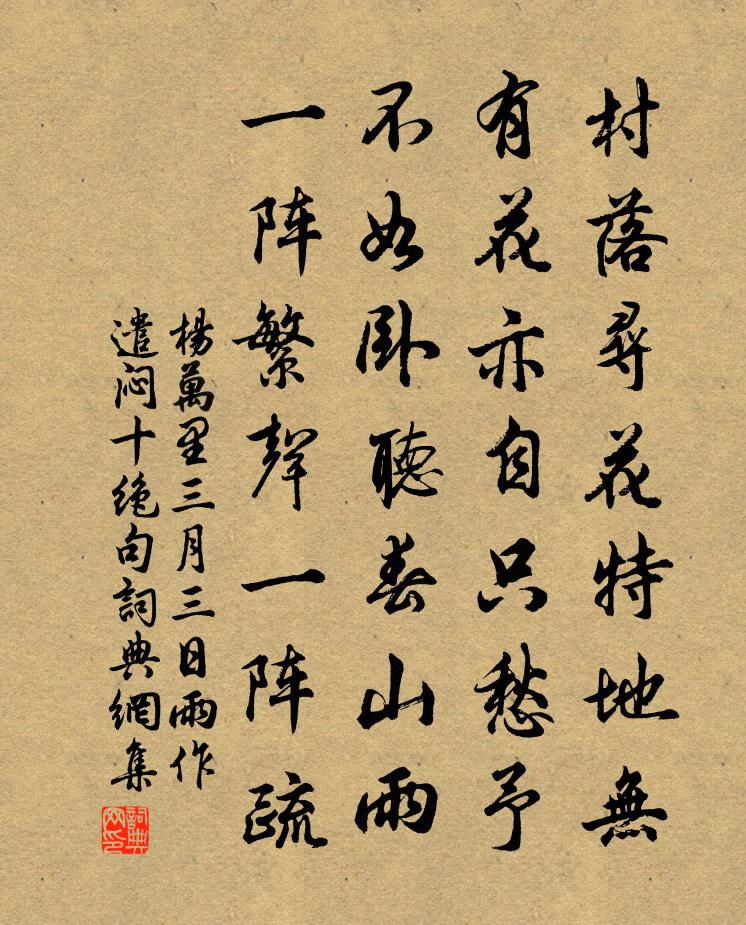 村落尋花特地無
有花亦自只愁予
不如卧聽春山雨
一阵繁聲一阵疏
楊萬里三月三日雨作
遣闷十絶句詞典網集
詞典网印